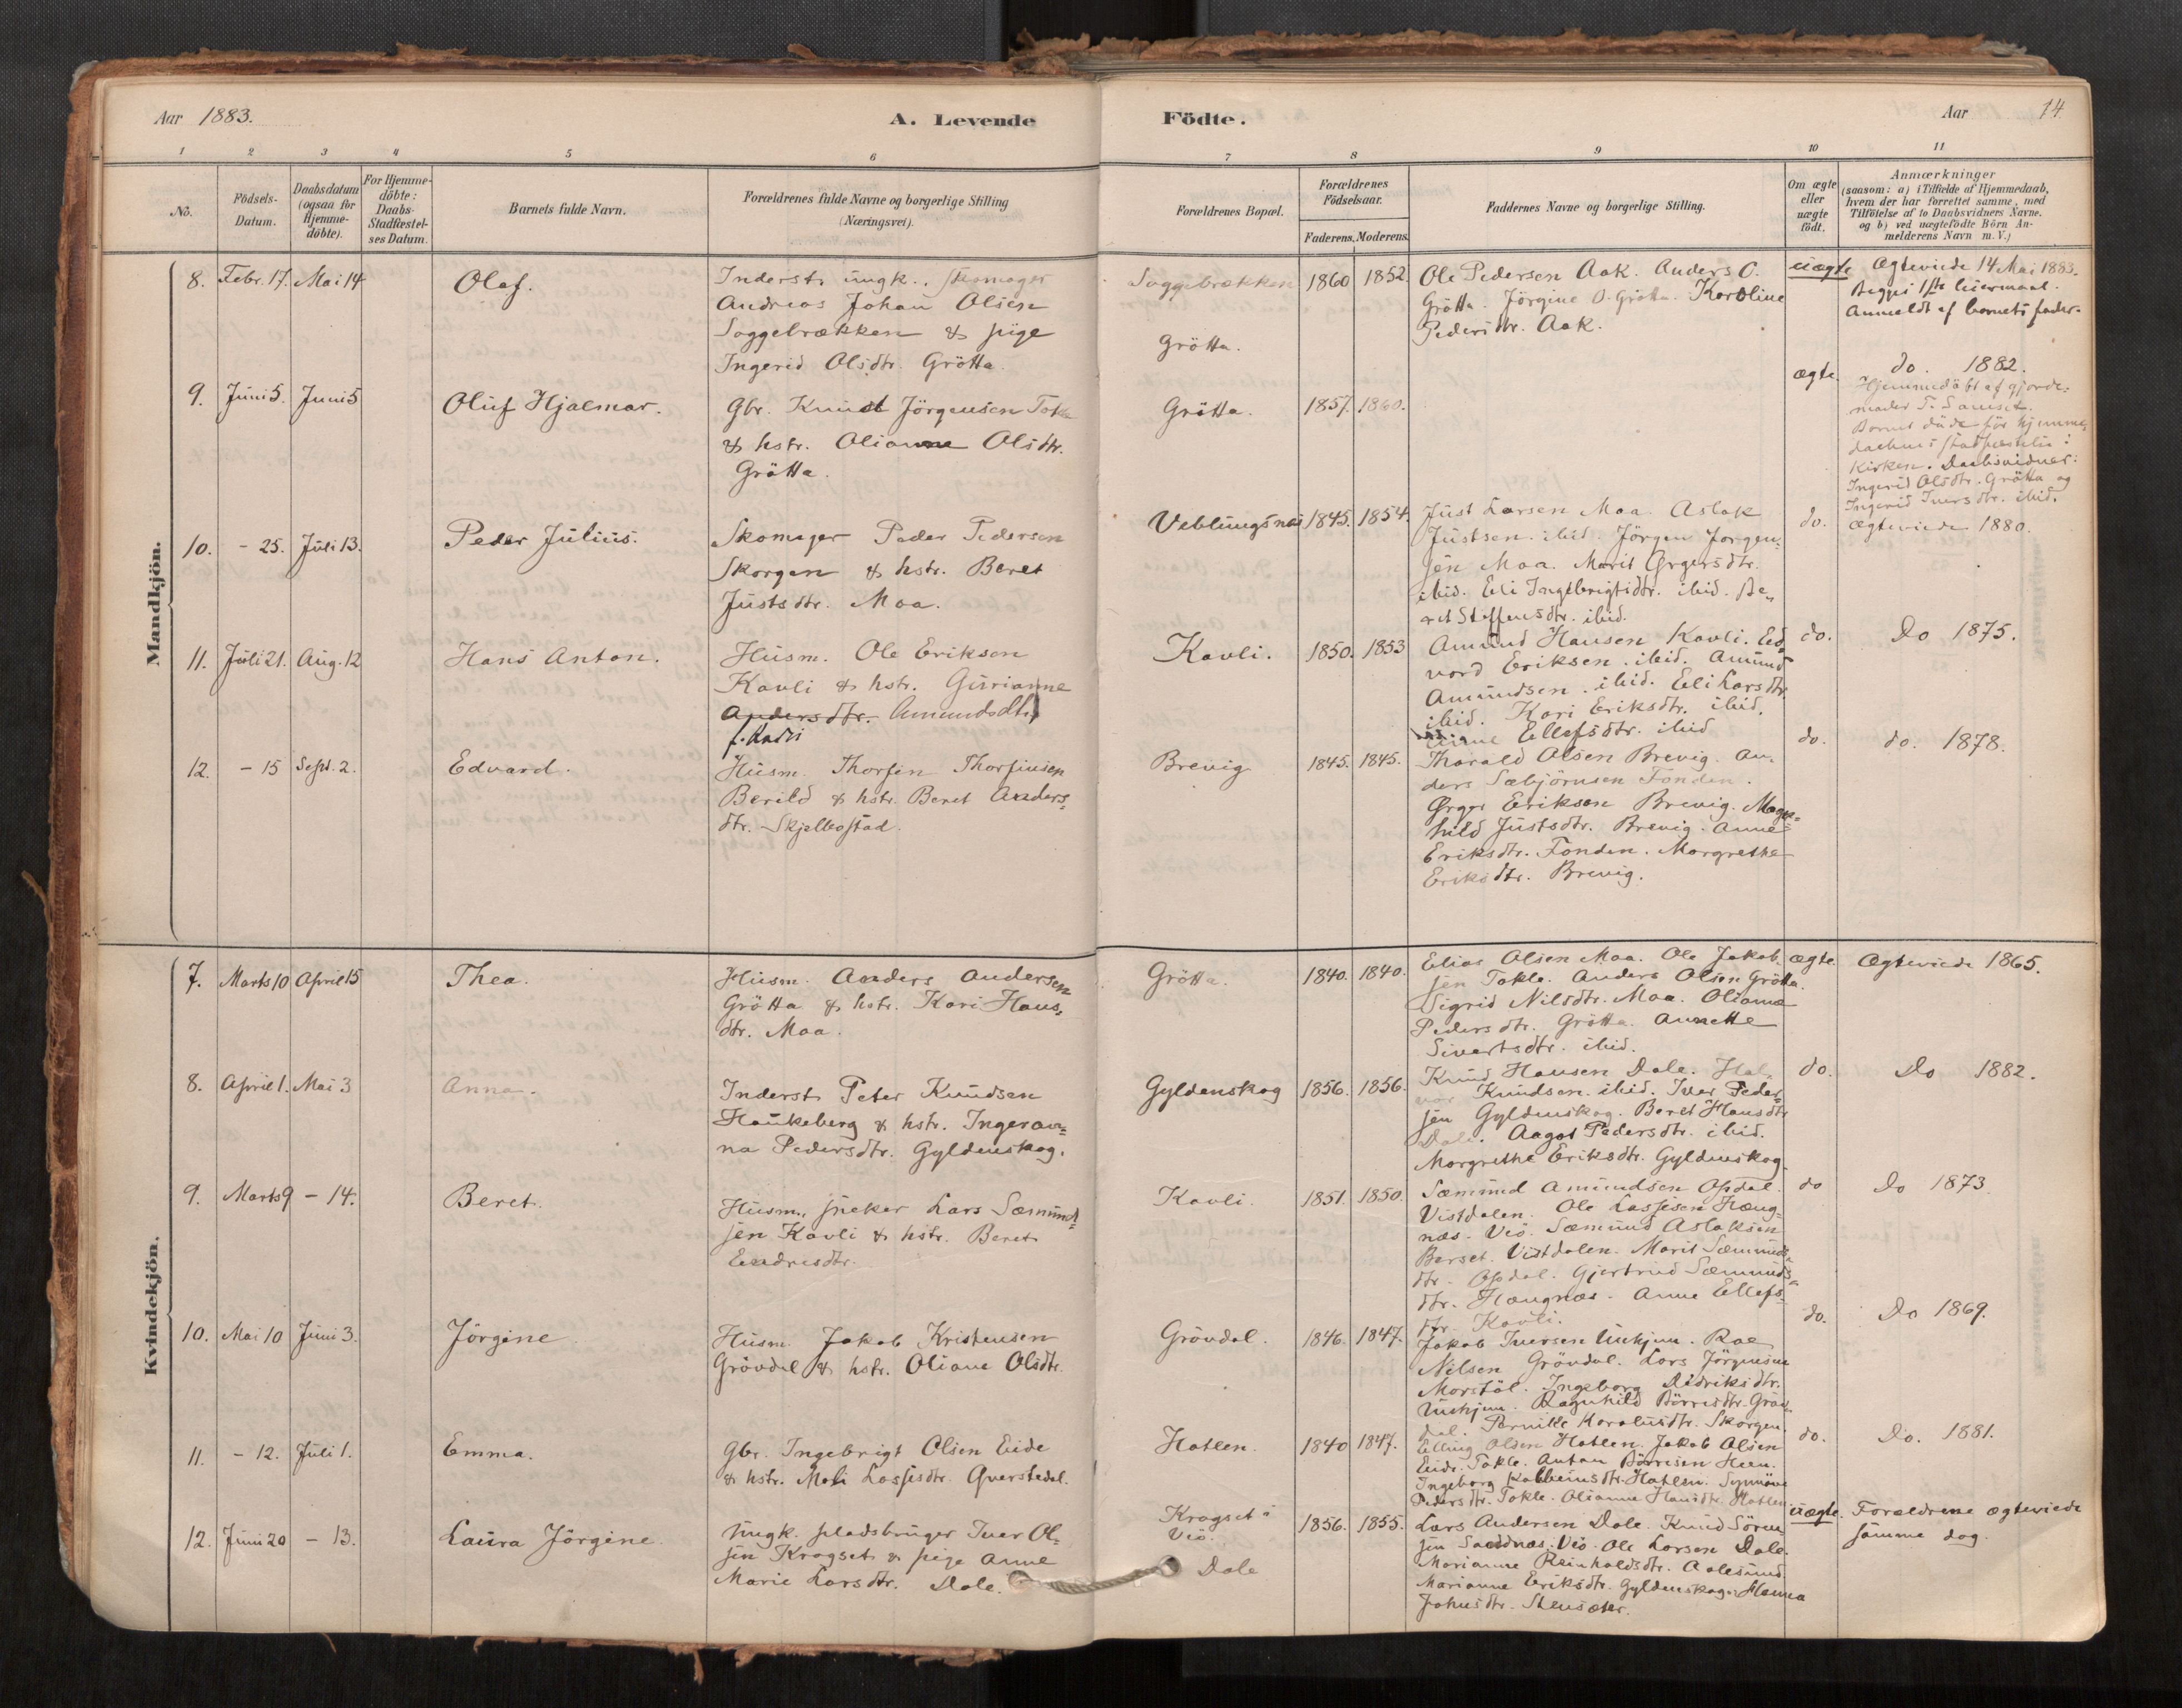 Aar 1883.
A. Levende
Födte.
Aar
14.
1 2 3 4 5 6 7 8 9 10 11
No.
Födsels-
Datum.
Daabsdatum
(ogsaa for
Hjemme-
döbte).
For Hjemme-
döbte:
Daabs-
Stadfæstel-
ses Datum.
Barnets fulde Navn.
Forældrenes fulde Navne og borgerlige Stilling
(Næringsvei).
Forældrenes Bopæl.
Forældrenes
Födselsaar.
Faderens. Moderens.
Faddernes Navne og borgerlige Stilling.
Om ægte
eller
uægte
födt.
Anmærkninger
(saasom: a) i Tilfælde af Hjemmedaab,
hvem der har forrettet samme, med
Tilföielse af to Daabsvidners Navne.
og b) ved uægtefödte Börn An-
melderens Navn m. V.)
Mandkjön.
8. Febr. 17. Mai 14
Olaf.
Inderst, ungk., skomager
Andreas Johan Olsen
Soggebrækken & pige
Ingerid Olsdtr. Grötta.
Soggebrækken
Grötta.
1860 1852
Ole Pedersen Aak. Anders O.
Grötta. Jörgine O. Grötta. Karoline
Pedersdtr. Aak.
uægte
Ægteviede 14 Mai 1883.
Begges 1ste
Anmeldt af barnets fader.
9. Juni 5. Juni 5
Oluf Hjalmar.
Gbr. Knud Jörgensen Tokle
& hstr. Olianne Olsdtr.
Grötta.
Grötta.
1857. 1860.
ægte.
do. 1882.
Hjemmedöbt af gjorde-
moder
Barnet döde för hjemme-
daabens stadfæstelse i
kirken. Daabsvidner:
Ingerid Olsdtr. Grötta og
Ingerid Iversdtr. ibid.
10. - 25. Juli 13.
Peder Julius.
Skomager Peder Pedersen
Skorgen & hstr. Beret
Justsdtr. Moa.
Veblungsnes
1845. 1854.
Just Larsen Moa. Aslak
Justsen. ibid. Jörgen Jorgen-
sen Moa. Marit Ørgersdtr.
ibid. Eli Ingebrigtsdtr. ibid. Be-
ret Steffensdtr. ibid.
do.
Ægteviede 1880.
11. Juli 21. Aug. 12
Hans Anton.
Husm. Ole Eriksen
Kavli & hstr. Gurianne
Andersdtr. Amundsdtr.
f. Kavli
Kavli.
1850. 1853
Amund Hansen Kavli. Ed-
vard Eriksen. ibid. Amund
Amundsen. ibid. Eli Larsdtr.
ibid. Kari Eriksdtr. ibid.
Anne Ellefsdtr. ibid
do.
Do 1875.
12. - 15 Sept. 2.
Edvard.
Husm. Thorfin Thorfinsen
Berild & hstr. Beret Anders-
dtr. Skjelbostad.
Brevig
1845. 1845.
Harald Olsen Brevig. An-
ders Sæbjörnsen Fonden.
Ørger Eriksen Brevig. Magn-
hild Justsdtr. Brevig. Anne
Eriksdtr. Fonden. Margrethe
Eriksdtr. Brevig.
do.
do. 1878.
Kvindekjön.
7. Marts 10 April 15
Thea.
Husm. Anders Andersen
Grötta & hstr. Kari Hans-
dtr. Moa.
Grötta.
1840. 1840.
Elias Olsen Moa. Ole Jakob-
sen Tokle. Anders Olsen Grötta.
Sigrid Nilsdtr. Moa. Olianna
Pedersdtr. Grötta. Annette
Sivertsdtr. ibid.
ægte.
Ægteviede 1865.
8. April 1. Mai 3
Anna.
Inderst Peter Knudsen
Haukeberg & hstr. Ingeran-
na Pedersdtr. Gyldenskog.
Gyldenskog
1856. 1856.
Knud Hansen Dale. Hal-
vor Knudsen. ibid. Iver Peder-
sen Gyldenskog. Beret Hansdtr
Dale. Aagot Pedersdtr. ibid.
Margrethe Eriksdtr. Gyldenskog.
do.
Do 1882.
9. Marts 9 - 14.
Beret.
Husm., sneker Lars Sæmund-
sen Kavli & hstr. Beret
Endresdtr.
Kavli.
1851. 1850.
Sæmund Amundsen Opdal.
Vistdalen. Ole Lassesen Hæng-
næs. Veö. Sæmund Aslaksen
Berset. Vistdalen. Marit Sæmunds-
dtr. Opdal. Gjertrud Sæmunds-
dtr. Hængnæs. Anne Ellefs-
dtr. Kavli.
do
Do 1873.
10. Mai 10 Juni 3.
Jörgine
Husm. Jakob Kristensen
Grövdal & hstr. Oliane Olsdtr.
Grövdal.
1846. 1847.
Jakob Iversen Unhjem. Roe
Nilsen Grövdal. Lars Jörgensen
Morstöl. Ingeborg Didriksdtr.
Unhjem. Ragnhild Börresdtr. Gröv-
dal. Pernille Karolusdtr. Skorgen.
do.
Do 1869.
11. - 12. Juli 1.
Emma.
Gbr. Ingebrigt Olsen Eide
& hstr. Mali Lassesdtr. Qverstedal.
Hatlen.
1840 1847.
Elling Olsen Hatlen. Jakob Olsen
Eide. Tokle. Anton Börresen Heen.
Ingeborg Kolbeinsdtr. Hatlen. Synnöve
Pedersdtr. Tokle. Olianne Hansdtr. Hatlen.
do.
Do. 1881.
12. Juni 20 - 13.
Laura Jörgine.
Ungk. pladsbruger Iver Ol-
sen Krogset & pige Anne
Marie Larsdtr. Dale.
Krogset i
Veö.
Dale
1856. 1855.
Lars Andersen Dale. Knud Sören-
sen Sandnæs. Veö. Ole Larsen Dale.
Marianne Reinholdsdtr. Aalesund.
Marianne Eriksdtr. Gyldenskog. Hanna
Johnsdtr. Stensæter.
uægte.
Forældrene ægteviede
samme dag.